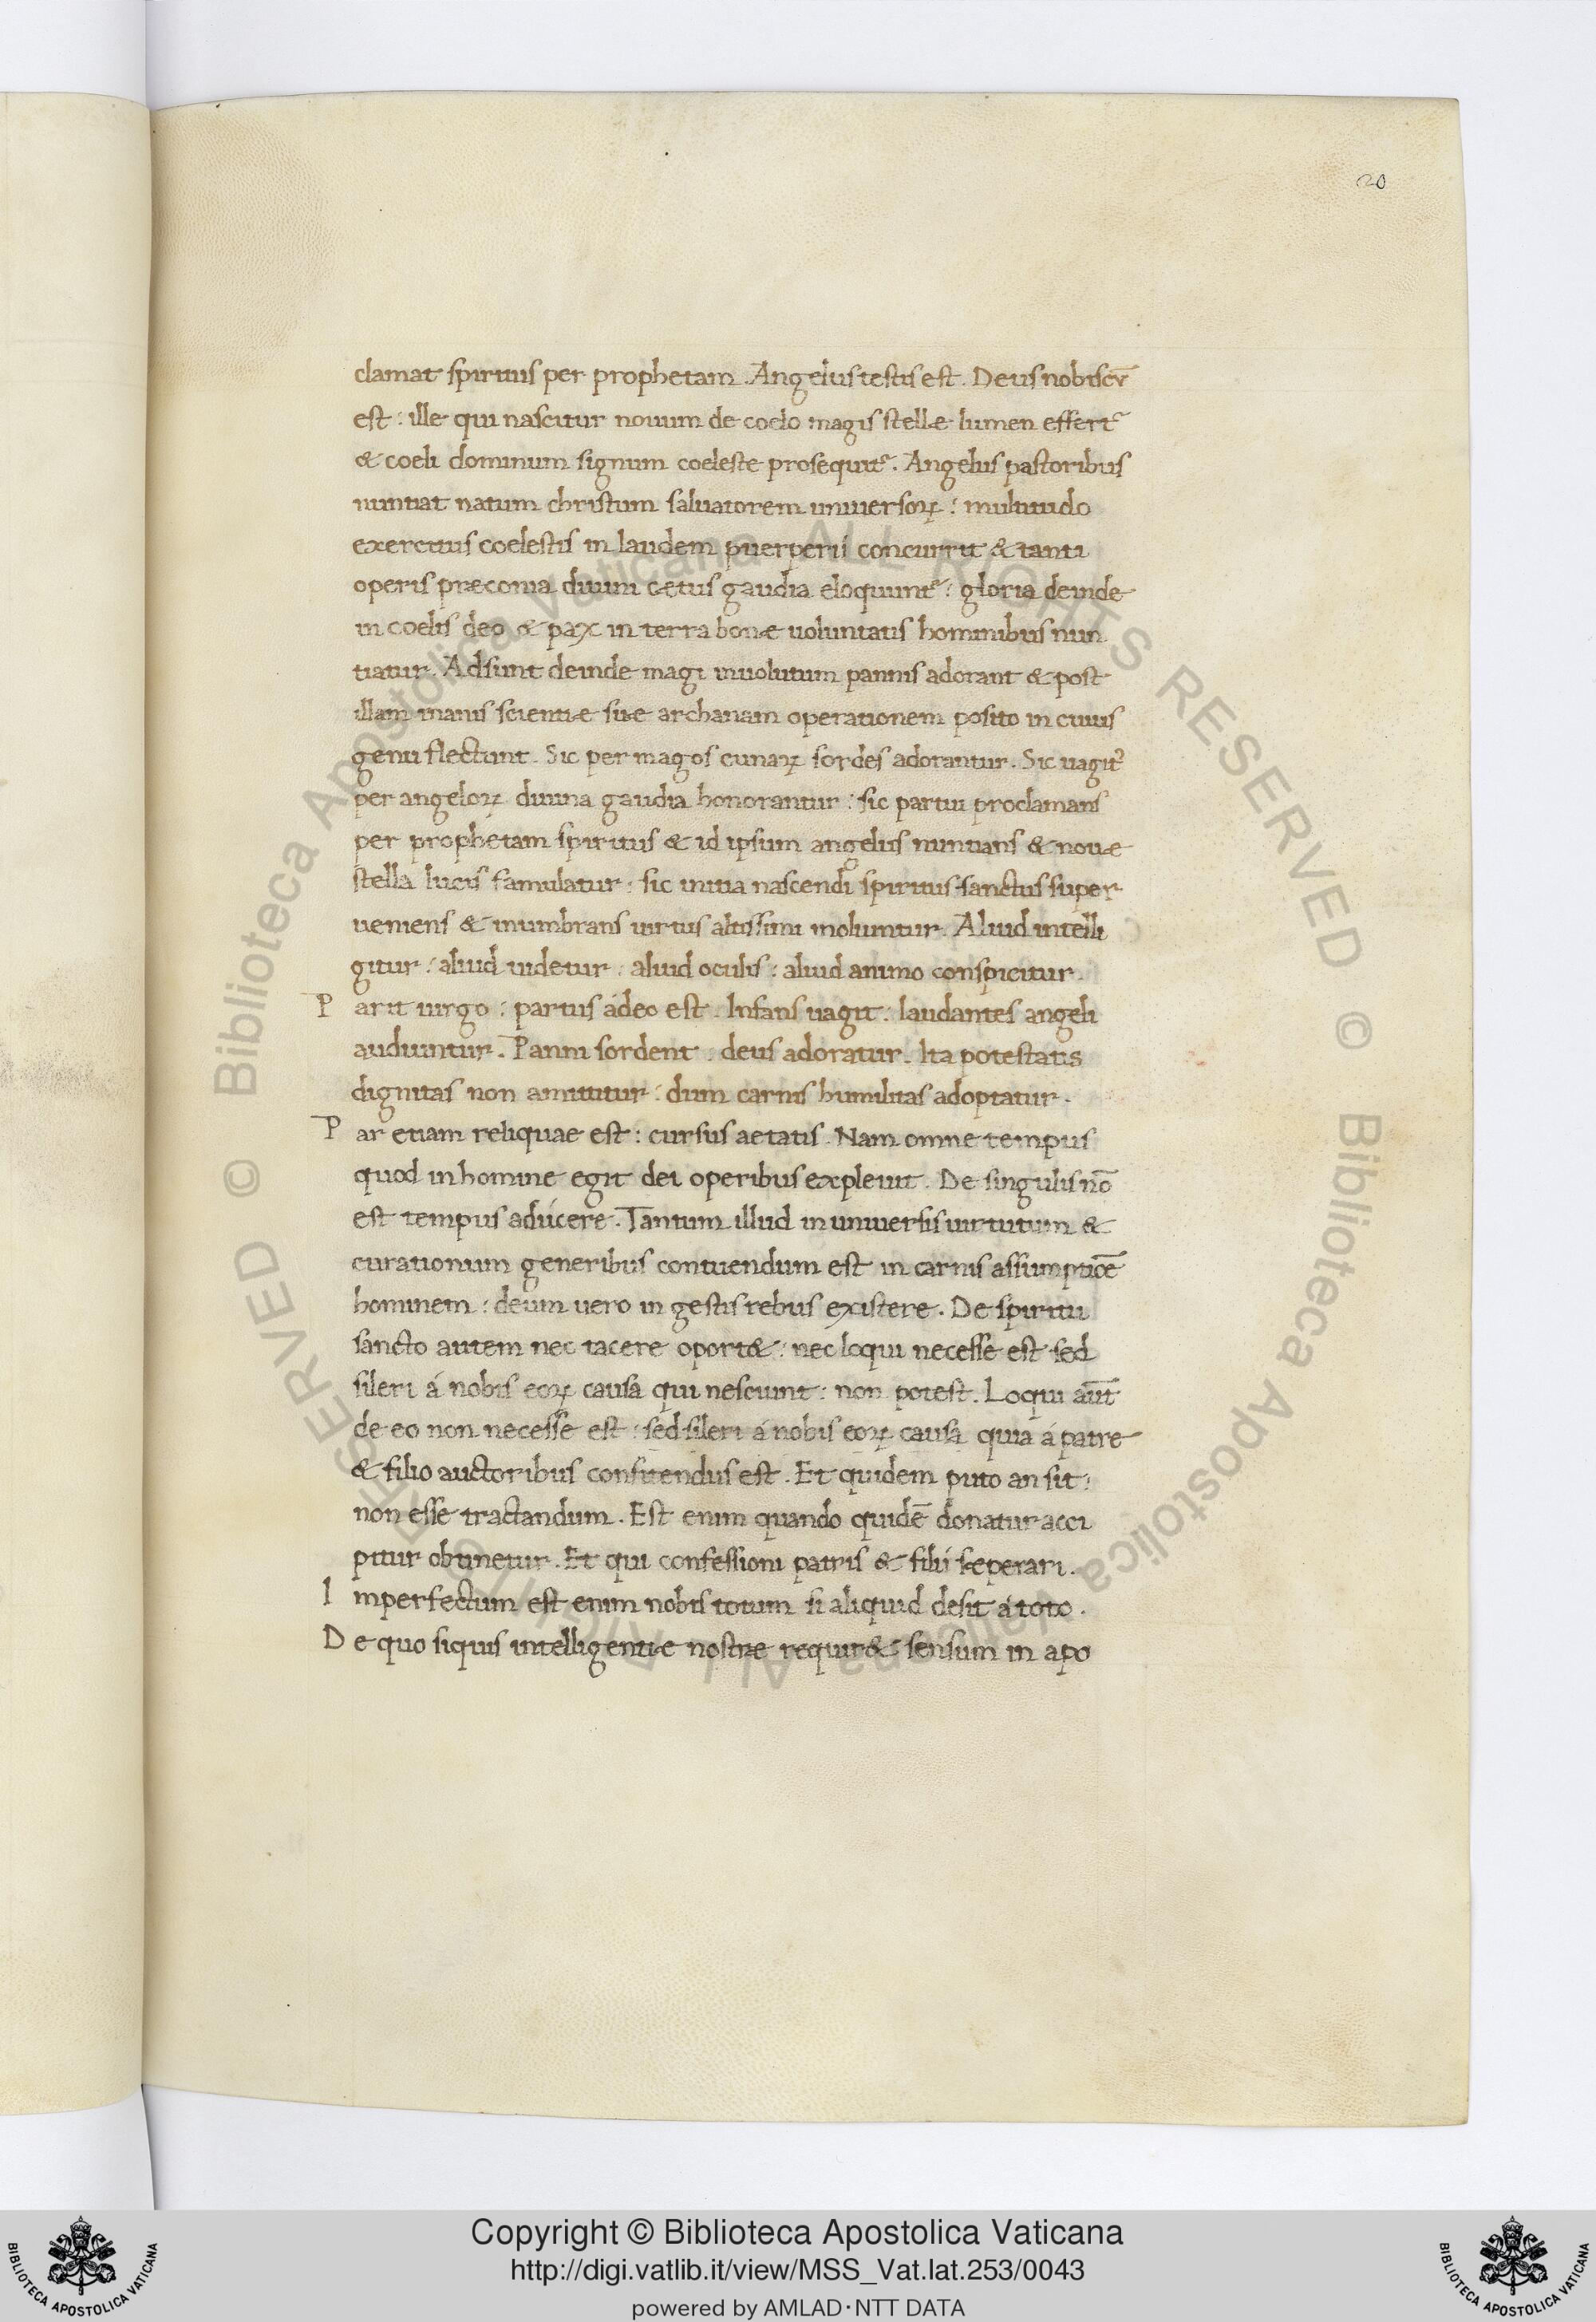 20
clamat spiritus per prophetam. Angelus testis est. Deus nobiscũ
est: ille qui nascitur nouum de coelo magis stellæ lumen effert᷑
& coeli dominum signum coeleste prosequit᷑. Angelus pastoribus
nuntiat natum christum saluatorem uniuersoꝝ: multitudo
exercitus coelestis in laudem puerperii concurrit & tanti
operis præconia diuini cætus gaudia eloquunt᷑: gloria deinde
in coelis deo & pax in terra bonæ uoluntatis hominibus nun
tiatur. Adsunt deinde magi inuolutum pannis adorant & post
illam inanis scientiæ suæ archanam operationem posito in cuius
genu flectunt. Sic per magos cunaꝝ sordes adorantur. Sic uagit᷑
per angeloꝝ diuina gaudia honorantur: sic partui proclamans
per prophetam spiritus & id ipsum angelus nuntians & nouæ
stella lucis famulatur: sic initia nascendi spiritus sanctus super
ueniens & inumbrans uirtus altissimi moliuntur. Aliud intelli
gitur: aliud uidetur: aliud oculis: aliud animo conspicitur.
Parit uirgo: partus ádeo est. Infans uagit: laudantes angeli
audiuntur. Panni sordent: deus adoratur. Ita potestatis
dignitas non amittitur: dum carnis humilitas adoptatur.
Par etiam reliquae est: cursus aetatis. Nam omne tempus
quod in homine egit dei operibus expleuit. De singulis nõ
est tempus adúcere. Tantum illud in uniuersis uirtutum &
curationum generibus contuendum est in carnis assumptiõe
hominem: deum uero in gestis rebus existere. De spiritu
sancto autem nec tacere oport&: nec loqui necesse est sed
sileri á nobis eoꝝ causa qui nesciunt: non potest. Loqui aũt
de eo non necesse est: sed sileri á nobis eoꝝ causa quia á patre
& filio auctoribus confitendus est. Et quidem puto an sit:
non esse tractandum. Est enim quando quidẽ donatur acci
pitur obtinetur. Et qui confessioni patris & filii seperari.
Imperfectum est enim nobis totum si aliquid desit á toto.
De quo siquis intelligentiæ nostræ requir& sensum in apo
Copyright © Biblioteca Apostolica Vaticana
http://digi.vatlib.it/view/MSS_Vat.lat.253/0043
powered by AMLAD·NTT DATA